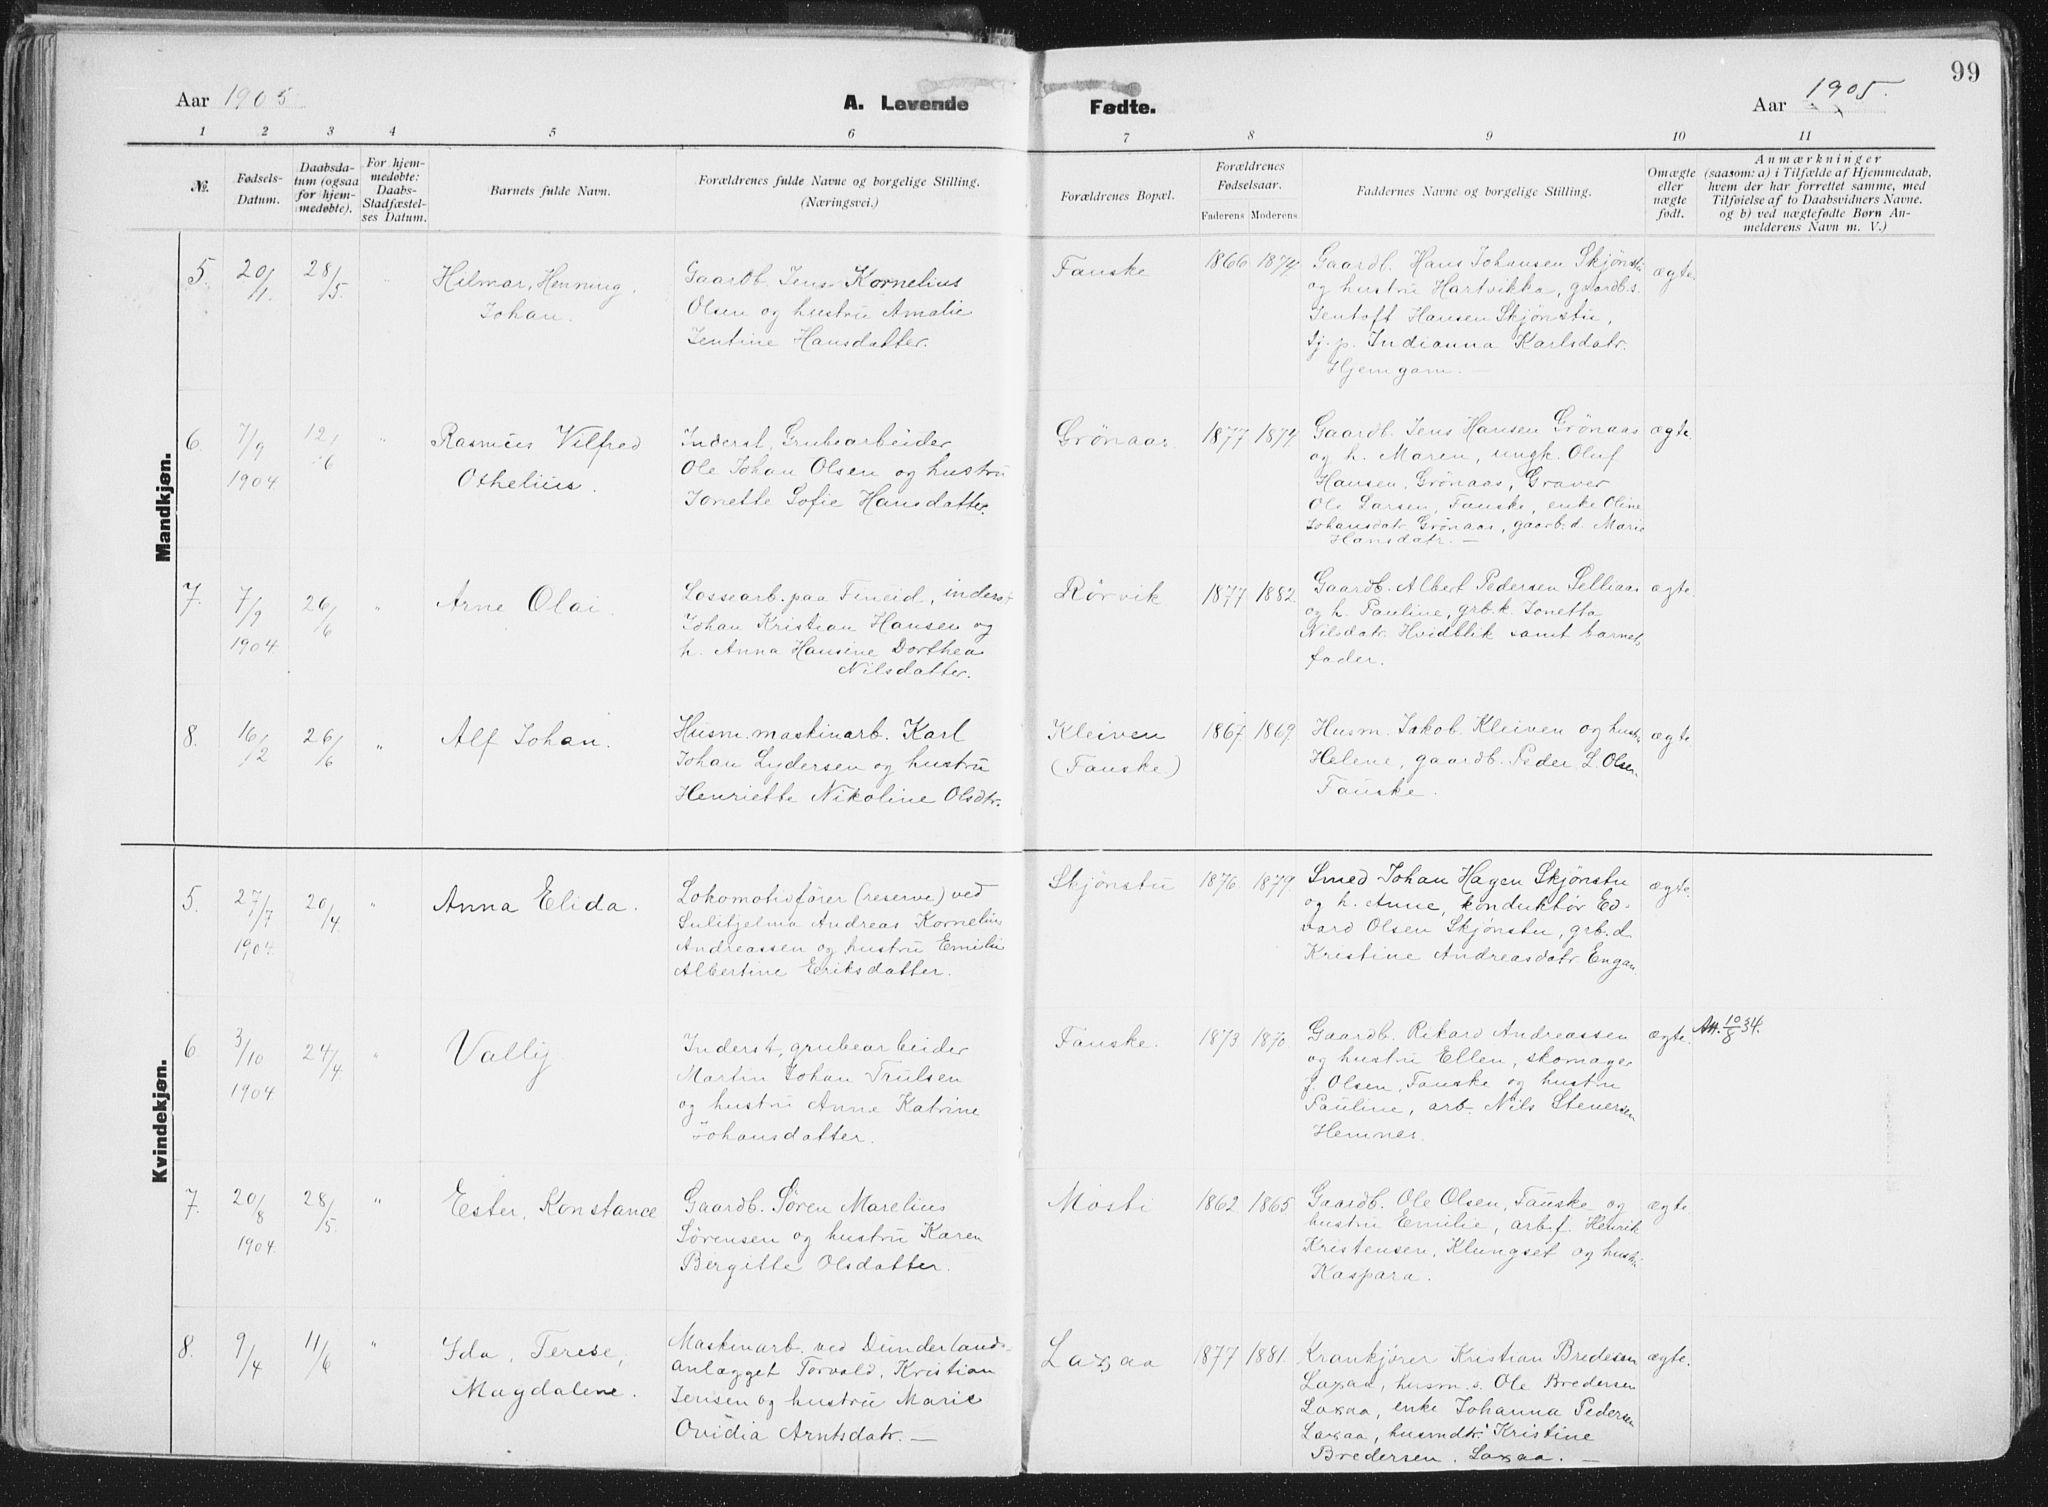 99
Aar 1905
A. Levende Fødte.
Aar 1905.
1 2 3 4 5 6 7 8 9 10 11
№.
Fødsels-
Datum.
Daabsda-
tum (ogsaa
for hjem-
medøbte).
For hjem-
medøbte:
Daabs-
Stadfæstel-
ses Datum.
Barnets fulde Navn.
Forældrenes fulde Navne og borgelige Stilling.
(Næringsvei.)
Forældrenes Bopæl.
Forældrenes
Fødselsaar.
Faderens Moderens.
Faddernes Navne og borgelige Stilling.
Omægte
eller
nægte
født.
Anmærkninger
(saasom: a) i Tilfælde af Hjemmedaab,
hvem der har forrettet samme, med
Tilføielse af to Daabsvidners Navne.
og b) ved nægtefødte Børn An-
melderens Navn m. V.)
Mandkjøn.
5. 20/1. 28/5. "
Hilmar, Henning,
Johan.
Gaardb. Jens Kornelius
Olsen og hustru Amalie
Jentine Hansdatter.
Fauske
1866 1874
Gaardb. Hans Johansen Skjønstu
og hustru Hartvikka, gaardb.s.
Jentoft Hansen Skjønstu,
tj. p. Indianna Karlsdatr.
Hjemgam. —
ægte
6. 7/9 1904. 12/6 "
Rasmus Vilfred
Othelius.
Inderst, Grubearbeider
Ole Johan Olsen og hustru
Jonette Sofie Hansdatter.
Grønaas.
1877 1874
Gaardb. Jens Hansen Grønaas
og h. Maren, ungk. Oluf
Hansen, Grønaas, Graver
Ole Larsen, Fauske, enke Oline
Johansdatr. Grønaas, gaarb.d. Marie
Hansdatr. —
ægte.
7. 7/9 1904. 26/6 "
Arne Olai.
Lossearb. paa Fineid, inderst
Johan Kristian Hansen og
h. Anna Hansine Dorthea
Nilsdatter.
Rørvik
1877 1882
Gaardb. Albert Pedersen Selliaas
og h. Pauline, grb.k. Jonetta
Nilsdatr. Hvidblik samt barnets
fader.
ægte.
8. 16/12 26/6 "
Alf Johan.
Husm. maskinarb. Karl
Johan Lydersen og hustru
Henriette Nikoline Olsdtr.
Kleiven
(Fauske)
1867. 1869.
Husm. Jakob Kleiven og hustru
Helene, gaardb. Peder L. Olsen
Fauske.
ægte
Kvindekjøn.
5. 27/7 1904. 20/4. "
Anna Elida.
Lokomotivfører (reserve) ved
Sulitjelma Andreas Kornelius
Andreassen og hustru Emilie
Albertine Eriksdatter.
Skjønstu
1876 1879.
Smed Johan Hagen Skjønstu
og h. Anne, konduktør Ed-
vard Olsen Skjønstu, grb.d.
Kristine Andreasdatr. Engan
ægte.
6 3/10 1904 24/4. "
Vally
Inderst, grubearbeider
Martin Johan Trulsen
og hustru Anne Katrine
Johansdatter.
Fauske.
1873 1870.
Gaardb. Rikard Andreassen
og hustru Ellen, skomager
J. Olsen, Fauske og hustru
Pauline, arb. Nils Stenersen
Hemnes.
ægte.
Att. 10/8 34.
7. 20/8 1904. 28/5. "
Ester, Konstance
Gaardb. Søren Marelius
Sørensen og hustru Karen
Bergitte Olsdatter.
Mosti
1862 1865
Gaardb. Ole Olsen, Fauske og
hustru Emilie, arb.f. Henrik
Kristensen, Klungset og hustru
Kaspara.
ægte
8. 9/4 11/6 "
Ida, Terese,
Magdalene.
Maskinarb. ved Dunderlands-
anlægget Torvald, Kristian
Jensen og hustru Marie
Ovidia Arntsdatr. —
Laxaa
1877 1881.
Krankjører Kristian Bredesen
Laxaa, husm.s. Ole Bredersen
Laxaa, enke Johanna Pedersen
Laxaa, husmdtr. Kristine
Bredersen, Laxaa. —
ægte.